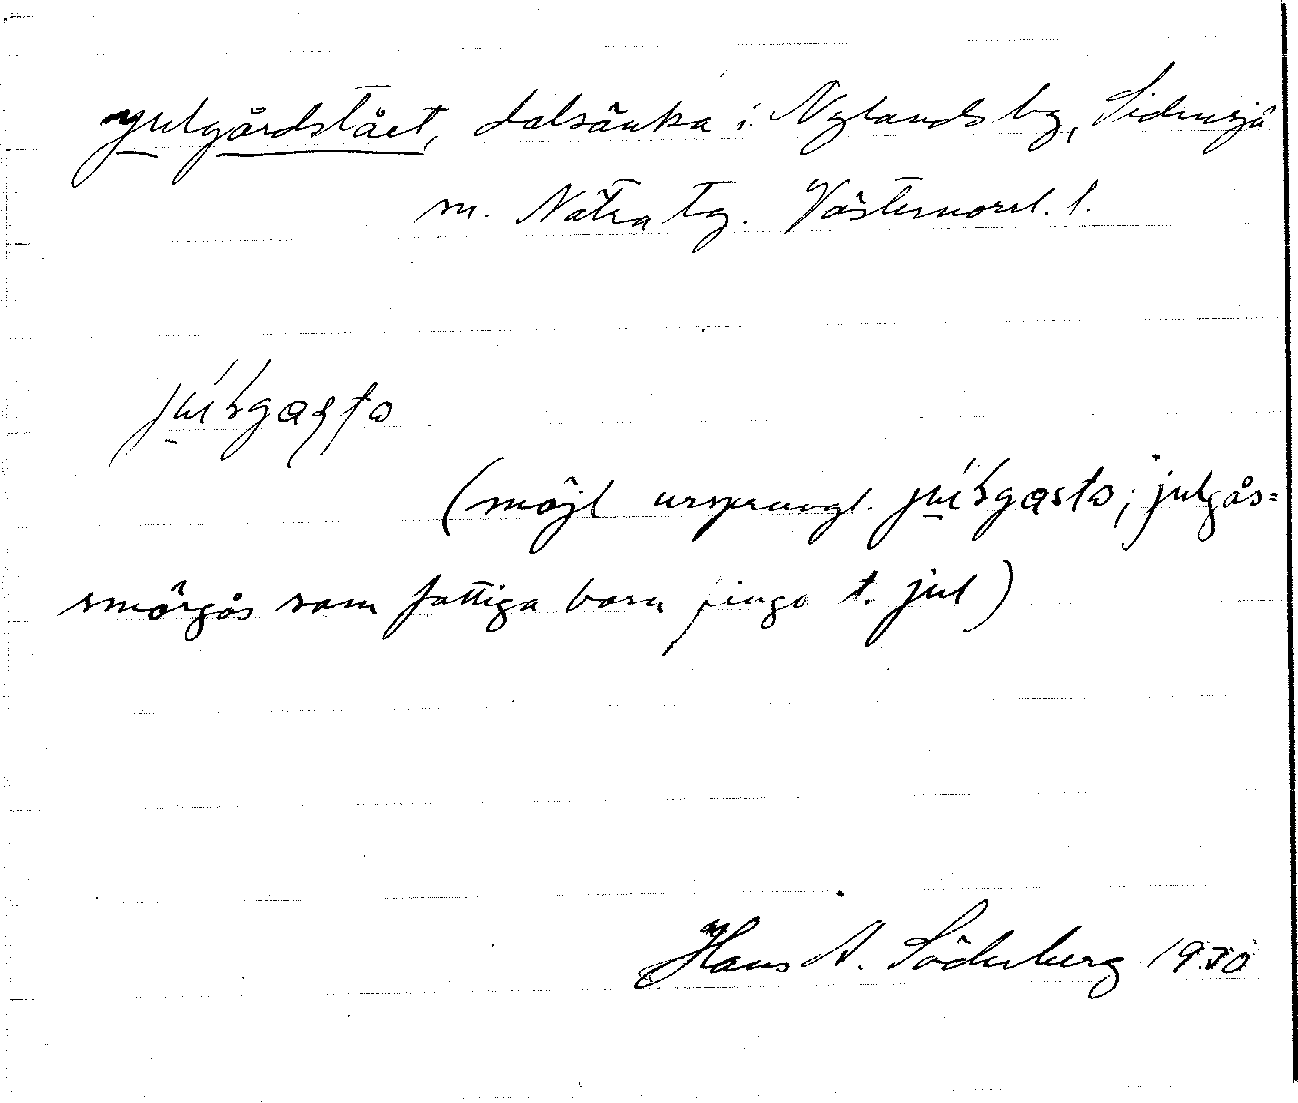 julgårdstået, dalsänka i Nylands by, Sidensjö
sn. Nätra tg. Västernorrl. l.
(möjl ursprungl. julgås=
smörgås som fattiga barn fingo t. jul)
Hans A. Söderberg 1930